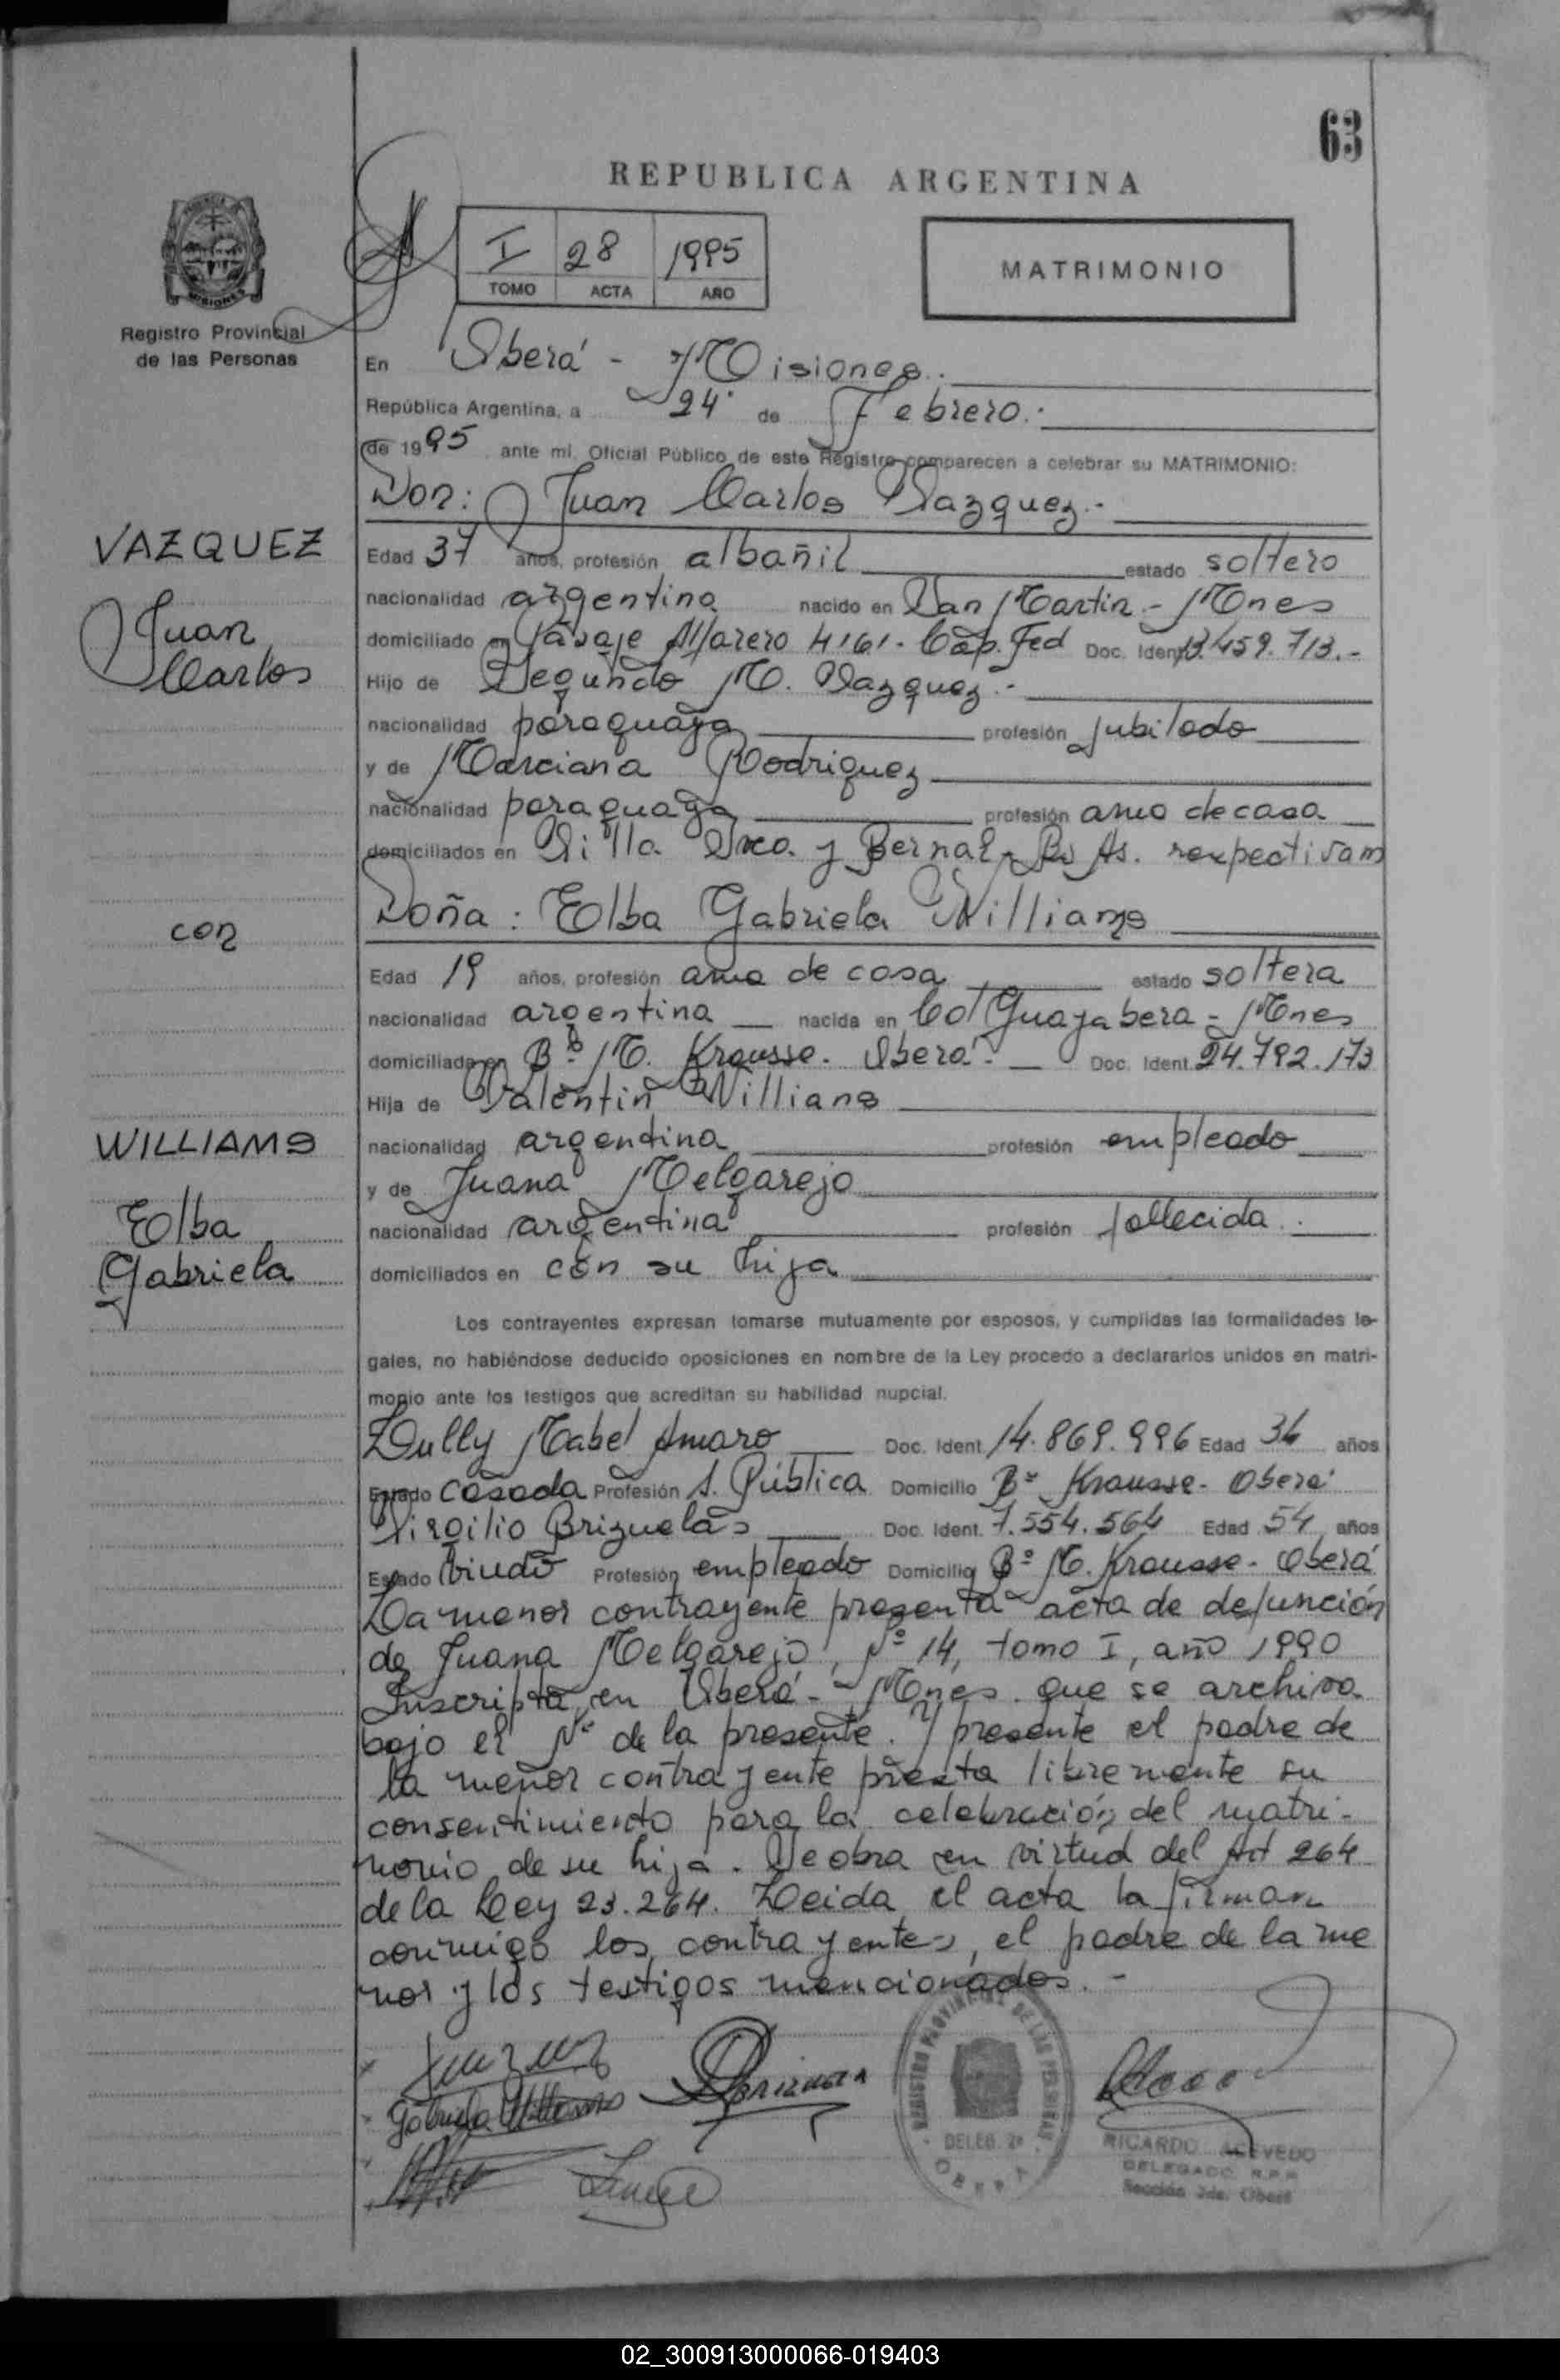 63
REPUBLICA ARGENTINA
I 28 1995
TOMO ACTA AÑO
MATRIMONIO
MISIONES
Registro Provincial
de las Personas
En Oberá - Misiones.
República Argentina, a 24 de Febrero.
de 1995 ante mi, Oficial Público de este Registro comparecen a celebrar su MATRIMONIO:
Don: Juan Carlos Vazquez.-
VAZQUEZ
Juan
Carlos
Edad 37 años, profesión albañil estado soltero
nacionalidad argentina nacido en San Martin - Mnes
domiciliado en Pasaje 4161 - Cap. Fed Doc. Ident. 13.459.713.-
Hijo de Segundo M. Vazquez.-
nacionalidad paraguaya profesión jubilado
y de Marciana Rodriguez
nacionalidad paraguaya profesión ama de casa
domiciliados en Villa y Bernal - Bs As. respectivam
con
Doña: Elba Gabriela Williams
Edad 19 años, profesión ama de casa estado soltera
nacionalidad argentina nacida en Col Guayabera - Mnes
domiciliada en Bº M. Krausse. Oberá - Doc. Ident. 24.792.173
Hija de Valentin Williams
WILLIAMS
Elba
Gabriela
nacionalidad argentina profesión empleado
y de Juana Melgarejo
nacionalidad argentina profesión fallecida.
domiciliados en con su hija
Los contrayentes expresan tomarse mutuamente por esposos, y cumplidas las formalidades le-
gales, no habiéndose deducido oposiciones en nombre de la Ley procedo a declararlos unidos en matri-
monio ante los testigos que acreditan su habilidad nupcial.
Lully Mabel Amaro Doc. Ident. 14.869.996 Edad 34 años
Estado casada Profesión Pública Domicilio Bº Krausse - Oberá
Virgilio Brizuela Doc. Ident. 7.554.564 Edad 54 años
Estado viudo Profesión empleado Domicilio Bº M. Krausse - Oberá
La menor contrayente presenta acta de defunción
de Juana Melgarejo, Nº 14, tomo I, año 1990
Inscripta en Oberá - Mnes. que se archiva
bajo el Nº de la presente. Y presente el padre de
la menor contrayente presta libremente su
consentimiento para la celebración del matri-
monio de su hija. Se obra en virtud del Art 264
de la Ley 23.264. Leida el acta la firman
conmigo los contrayentes, el padre de la me
nor y los testigos mencionados.-
Gabriela Williams
REGISTRO PROVINCIAL DE LAS PERSONAS
DELEG. 2ª
OBERA
RICARDO ACEVEDO
DELEGADO R.P.P.
Sección 2da. Oberá
02_300913000066-019403